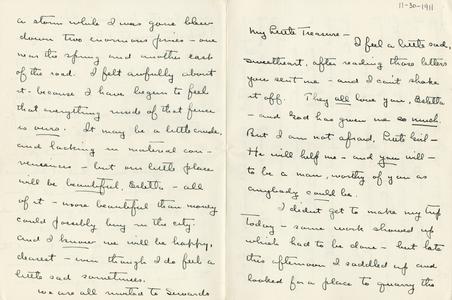 11-30-1911
My Little Treasure - I feel a little sad,
sweetheart, after reading those letters
you sent me - and I can't shake
it off. They all love you, Beletta
- and God has given me so much.
But I am not afraid, Little Girl -
He will help me - and you will -
to be a man, worthy of you as
anybody could be.
I didn't get to make my trip
today - some work showed up
which had to be done - but late
this afternoon I saddled up and
looked for a place to quarry the
a storm while I was gone blew
down two enormous pines - one
near the spring and another east
of the road. I felt awfully about
it - because I have begun to feel
that everything inside of that fence
is ours. It may be a little crude,
and lacking in material con-
veniences - but our little place
will be beautiful, Beletta - all
of it - more beautiful than money
could possibly buy in the city.
And I know we will be happy,
dearest - even though I do feel a
little sad sometimes.
We are all invited to Sewards